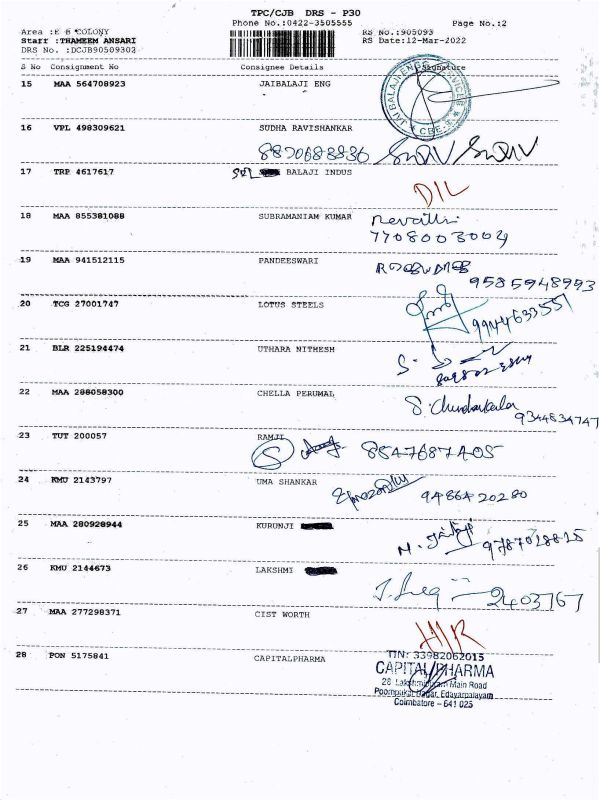 TPC/CJB DRS - P30
Phone No.:0422-3505555 Page No.:2
Area :E B COLONY RS No.:905093
Staff :THAMEEM ANSARI RS Date:12-Mar-2022
DRS No. :DCJB90509302
S No Consignment No Consignee Details Signature
15 MAA 564708923 JAIBALAJI ENG
JAI BALAJI ENGG SERVICES
CBE
16 VPL 498309621 SUDHA RAVISHANKAR
8870683836
17 TRP 4617617 BALAJI INDUS
D/L
18 MAA 855381088 SUBRAMANIAM KUMAR
Revathi
7708003004
19 MAA 941512115 PANDEESWARI
9585948993
20 TCG 27001747 LOTUS STEELS
9944633551
21 BLR 225194474 UTHARA NITHESH
22 MAA 288058300 CHELLA PERUMAL
S. Chandrakala
9344834747
23 TUT 200057 RAMJI
8547687405
24 KMU 2143797 UMA SHANKAR
9486420280
25 MAA 280928944 KURUNJI
9787018815
26 KMU 2144673 LAKSHMI
2403767
27 MAA 277298371 CIST WORTH
H/R
28 PON 5175841 CAPITALPHARMA
TIN: 33982062015
CAPITAL PHARMA
28 Lakshmipuram Main Road
Poompukar Nagar, Edayarpalayam
Coimbatore - 641 025